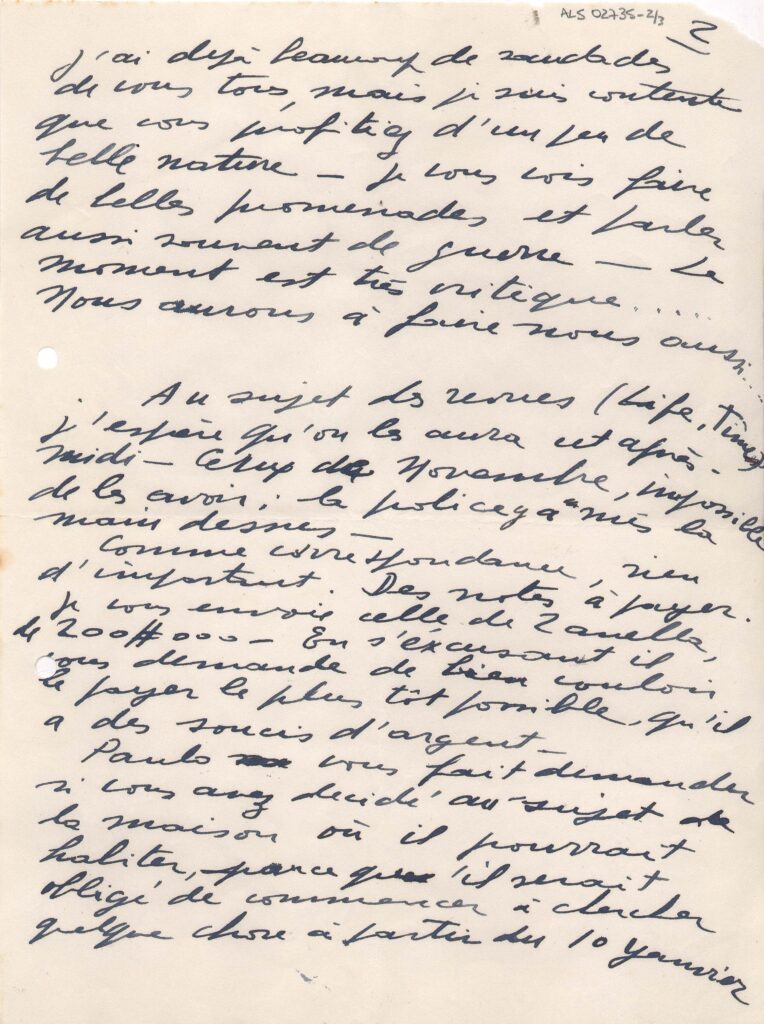 ALS 02735-2/3
2
j'ai déjà beaucoup de saudades
de vous tous, mais je suis contente
que vous profitiez d'un peu de
belle nature — je vous vois faire
de belles promenades et parler
aussi souvent de guerre — Le
moment est très critique.....
Nous aurons à faire nous aussi....
Au sujet des revues (Life, Times)
j'espère qu'on les aura cet après-
midi — Ceux de Novembre, impossible
de les avoir; la police y a mis la
main dessus —
Comme correspondance, rien
d'important. Des notes à payer.
je vous envoie celle de Zanella,
de 200#000 — En s'excusant il
vous demande de bien vouloir
le payer le plus tôt possible, qu'il
a des soucis d'argent —
Paulo vous fait demander
si vous avez décidé au sujet de
la maison où il pourrait
habiter, parce qu'il serait
obligé de commencer à chercher
quelque chose à partir du 10 Janvier